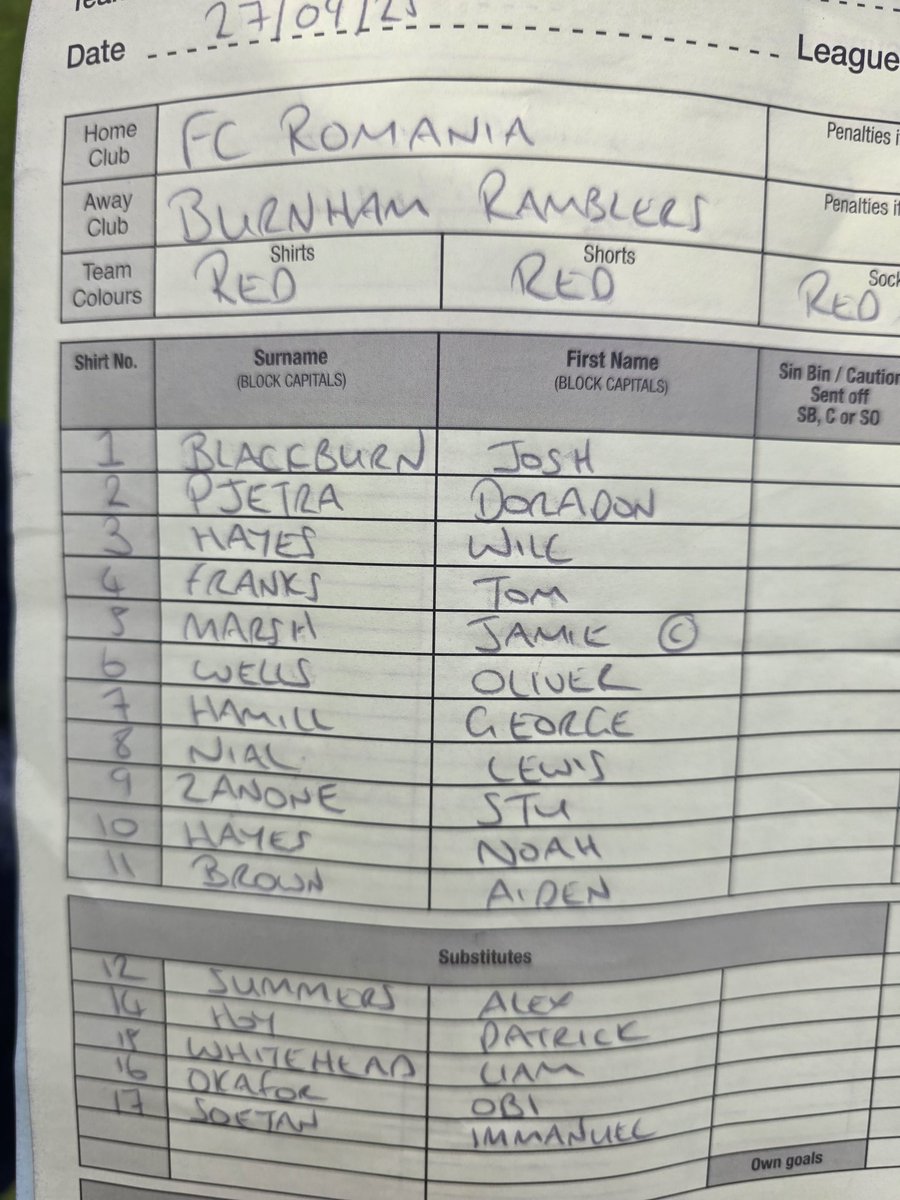 Date 27/09/25 League
Home Club FC ROMANIA Penalties
Away Club BURNHAM RAMBLERS Penalties
Team Colours Shirts RED Shorts RED RED
Shirt No. Surname (BLOCK CAPITALS) First Name (BLOCK CAPITALS) Sin Bin / Caution Sent off SB, C or SO
1 BLACKBURN JOSH
2 PJETRA DORADON
3 HAYES WILL
4 FRANKS TOM
5 MARSH JAMIE C
6 WELLS OLIVER
7 HAMILL GEORGE
8 NIAL LEWIS
9 ZANONE STU
10 HAYES NOAH
11 BROWN AIDEN
Substitutes
12 SUMMERS ALEX
14 HOY PATRICK
15 WHITEHEAD LIAM
16 OKAFOR OBI
17 SOETAN IMMANUEL
Own goals